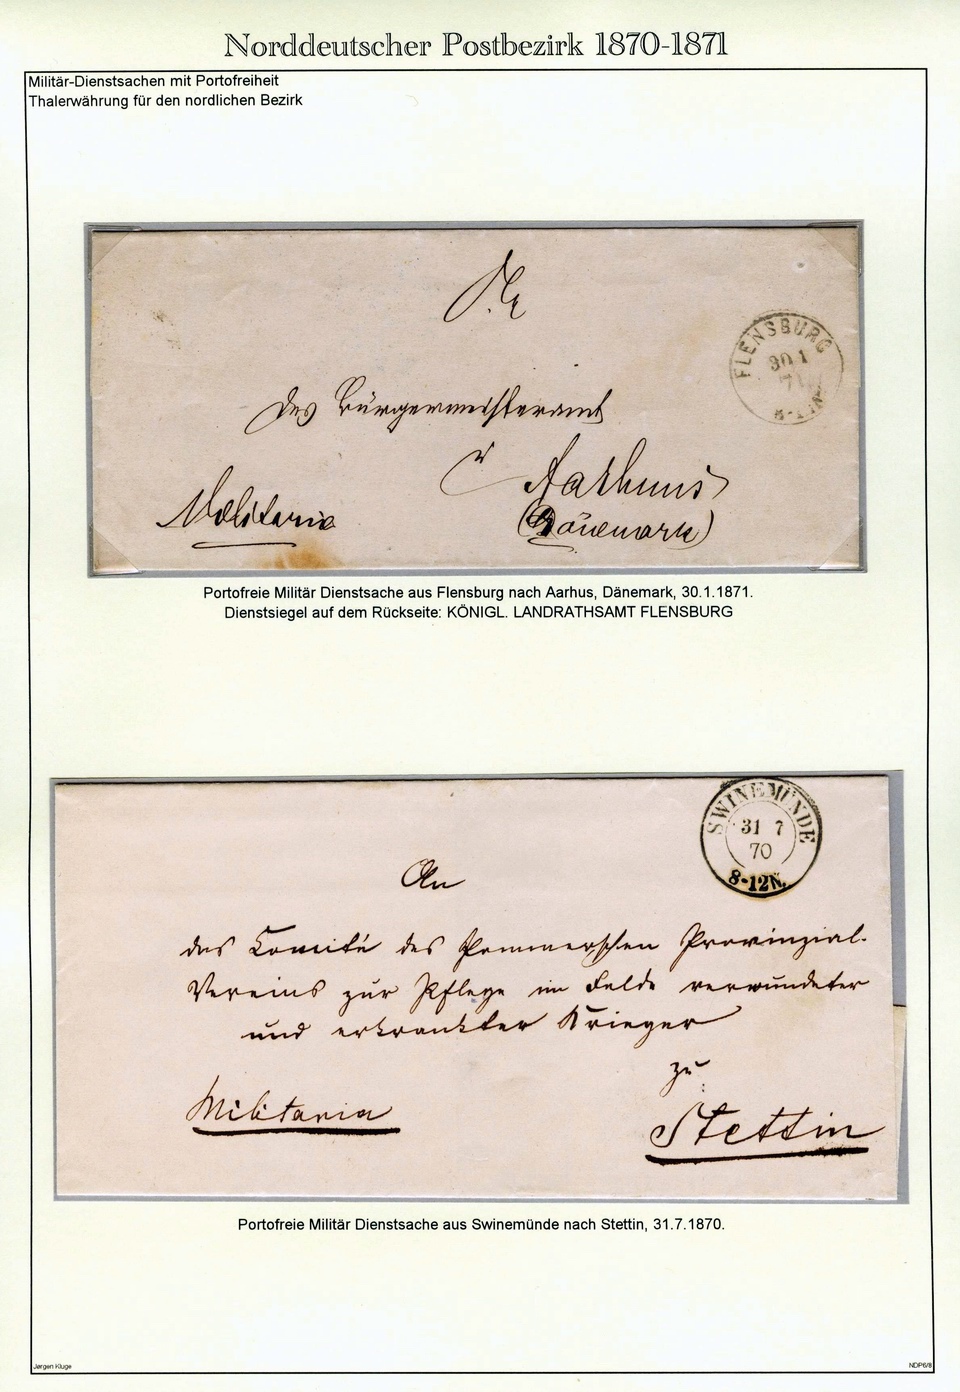 Norddeutscher Postbezirk 1870-1871
Militär-Dienstsachen mit Portofreiheit
Thalerwährung für den nordlichen Bezirk
FLENSBURG
30 1
71
das Bürgermeisteramt
Aarhuus
Militaria
(Dänemark)
Portofreie Militär Dienstsache aus Flensburg nach Aarhus, Dänemark, 30.1.1871.
Dienstsiegel auf dem Rückseite: KÖNIGL. LANDRATHSAMT FLENSBURG
SWINEMÜNDE
31 7
70
8-12N.
An
das Comité des Pommerschen Provinzial-
Vereins zur Pflege im Felde verwundeter
und erkrankter Krieger
zu
Militaria
Stettin
Portofreie Militär Dienstsache aus Swinemünde nach Stettin, 31.7.1870.
Jørgen Kluge
NDP6/8